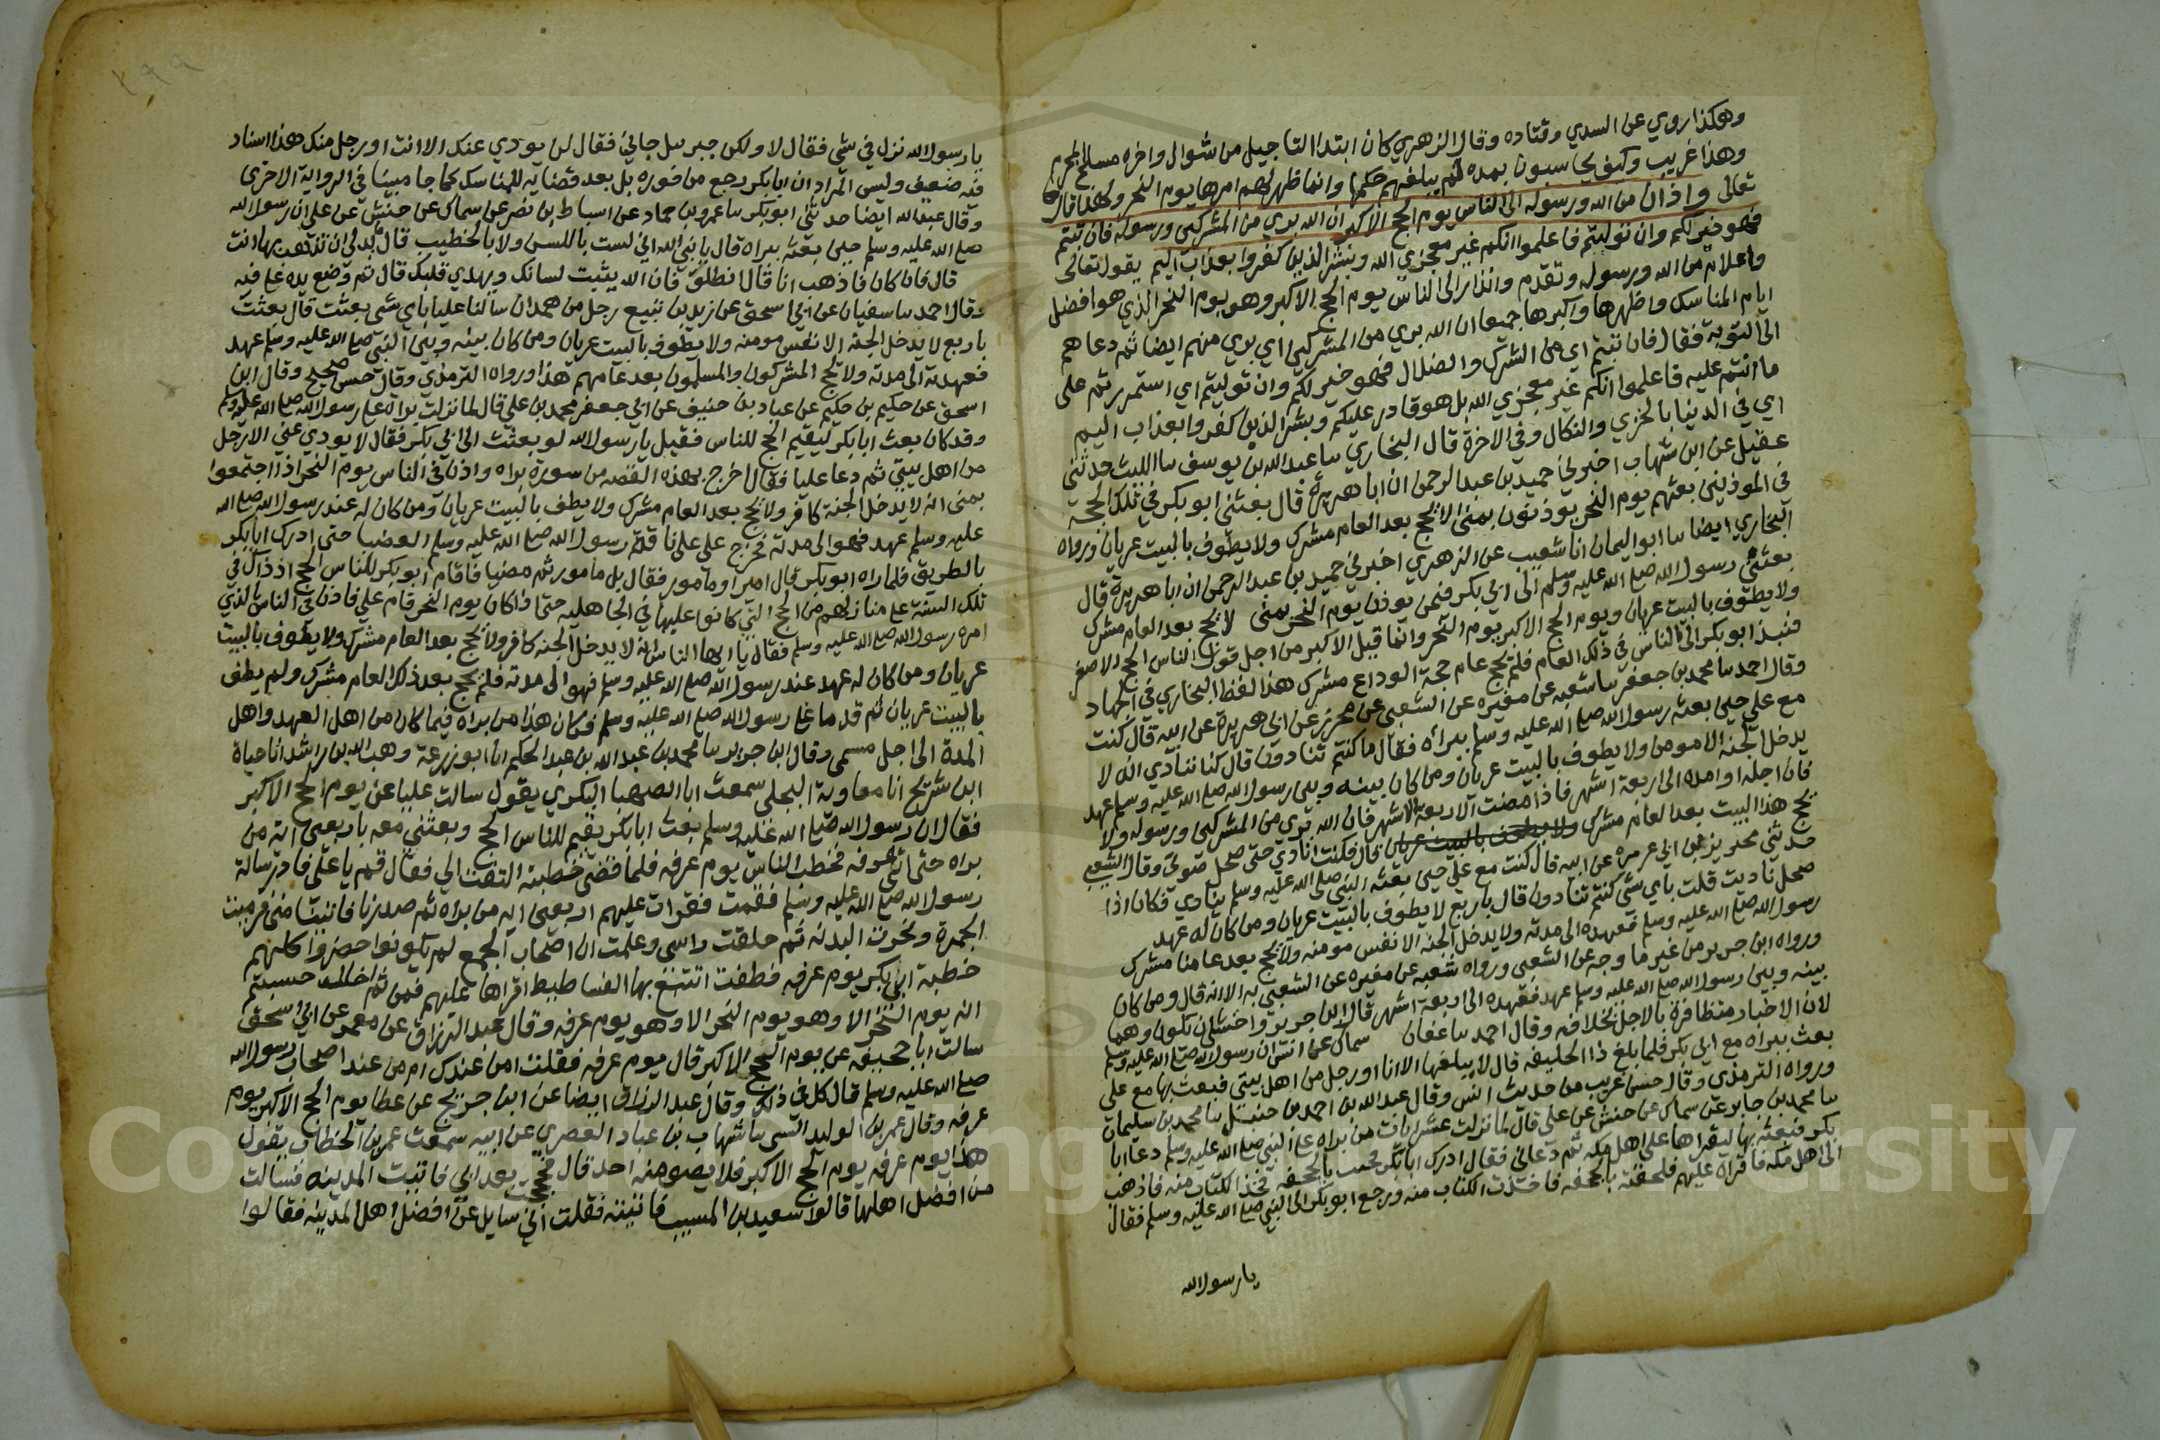 وهكذا روي عن السدي وقتاده وقال الزهري كان ابتدا التاجيل من شوال واخره مسلخ المحرم
وهذا غريب وكيف يحاسبون بمده لم يبلغهم حكمها وانما ظهر لهم امرها يوم النحر ولهذا قال
تعالى واذان من الله ورسوله الى الناس يوم الحج الاكبر ان الله بري من المشركين ورسوله فان تبتم
فهو خير لكم وان توليتم فاعلموا انكم غير معجزي الله وبشر الذين كفروا بعذاب اليم يقول تعالى
واعلام من الله ورسوله وتقدم وانذار الى الناس يوم الحج الاكبر وهو يوم النحر الذي هو افضل
ايام المناسك واظهرها واكبرها جميعا ان الله بري من المشركين اي بري منهم ايضا ثم دعاهم
الى التوبة فقال فان تبتم اي من الشرك والضلال فهو خير لكم وان توليتم اي استمررتم على
ما انتم عليه فاعلموا انكم غير معجزي الله بل هو قادر عليكم وبشر الذين كفروا بعذاب اليم
اي في الدنيا بالخزي والنكال وفي الاخرة قال البخاري سا عبدالله بن يوسف سا الليث حدثني
عقيل عن ابن شهاب اخبرني حميد بن عبد الرحمن ان ابا هريرة قال بعثني ابو بكر في تلك الحجة
في الموذنين بعثهم يوم النحر يوذنون بمنى الا يحج بعد العام مشرك ولا يطوف بالبيت عريان ورواه
البخاري ايضا سا ابو اليمان انا شعيب عن الزهري اخبرني حميد بن عبد الرحمن ان ابا هريرة قال
بعثني رسول الله صلى الله عليه وسلم الى ابي بكر فيمن يوذن يوم النحر بمنى لا يحج بعد العام مشرك
ولا يطوف بالبيت عريان ويوم الحج الاكبر يوم النحر وانما قيل الاكبر من اجل قول الناس الحج الاصغر
فنبذ ابو بكر الى الناس في ذلك العام فلم يحج عام حجة الوداع مشرك هذا لفظ البخاري في الجهاد
وقال احمد سا محمد بن جعفر سا شعبه عن مغيره عن الشعبي عن محرز عن ابي هريرة عن ابيه قال كنت
مع علي حين بعثه رسول الله صلى الله عليه وسلم ببراه فقال ما كنتم تنادون قال كنا ننادي انه لا
يدخل الجنة الا مومن ولا يطوف بالبيت عريان ومن كان بينه وبين رسول الله صلى الله عليه وسلم عهد
فان اجله او امده الى اربعة اشهر فاذا مضت الاربعة الاشهر فان الله بري من المشركين ورسوله ولا
يحج هذا البيت بعد العام مشرك ولا يطوف بالبيت عريان قال فكنت انادي حتى صحل صوتي وقال الشعبي
حدثني محرر بن ابي هريره عن ابيه قال كنت مع علي حين بعثه النبي صلى الله عليه وسلم ينادي فكان اذا
صحل ناديت قلت باي شي كنتم تنادون قال باربع لا يطوف بالبيت عريان ومن كان له عهد
رسول الله صلى الله عليه وسلم فعهده الى مدته ولا يدخل الجنه الا نفس مومنه ولا يحج بعد عامنا مشرك
ورواه ابن جرير من غير ما وجه عن الشعبي ورواه شعبه عن مغيره عن الشعبي به الا انه قال ومن كان
بينه وبين رسول الله صلى الله عليه وسلم عهد فعهده الى اربعة اشهر قال ابن جرير واخشى ان يكون وهما
لان الاخبار متظافرة بالاجل بخلافه وقال احمد سا عفان سماك عن انس ان رسول الله صلى الله عليه وسلم
بعث ببراه مع ابي بكر فلما بلغ ذا الحليفه قال لا يبلغها الا انا او رجل من اهل بيتي فبعث بها مع علي
ورواه الترمذي وقال حسن غريب من حديث انس وقال عبد الله بن احمد بن حنبل سا محمد بن سليمان
سا محمد بن جابر عن سماك عن حنش عن علي قال لما نزلت عشر ايات من براه على النبي صلى الله عليه وسلم دعا ابا
بكر فبعثه بها ليقراها على اهل مكه ثم دعاني فقال ادرك ابا بكر فحيث بالجحفه فخذ الكتاب منه فاذهب
الى اهل مكه فاقراه عليهم فلحقته بالجحفه فاخذت الكتاب منه ورجع ابو بكر الى النبي صلى الله عليه وسلم فقال
يا رسول الله
يا رسول الله نزل في شي فقال لا ولكن جبريل جاني فقال لن يودي عنك الا انت او رجل منك هذا اسناد
فيه ضعف وليس المراد ان ابا بكر رجع من فوره بل بعد قضايه للمناسك كما جا مبينا في الرواية الاخرى
وقال عبد الله ايضا حدثني ابو بكر سا عمرو بن حماد عن اسباط بن نصر عن سماك عن حنش عن علي ان رسول الله
صلى الله عليه وسلم حين بعثه ببراه قال يا نبي الله اني لست باللسن ولا بالخطيب قال بد لي ان تذهب بها انت
قال فان كان فاذهب انا قال انطلق فان الله يثبت لسانك ويهدي قلبك قال ثم وضع يده على فيه
وقال احمد سا سفيان عن ابي اسحق عن زيد بن يثيع رجل من همدان سالنا عليا باي شي بعثت قال بعثت
باربع لا يدخل الجنه الا نفس مومنه ولا يطوف بالبيت عريان ومن كان بينه وبين النبي صلى الله عليه وسلم عهد
فعهدته الى مدته ولا يحج المشركون والمسلمون بعد عامهم هذا ورواه الترمذي وقال حسن صحيح وقال ابن
اسحق عن حكيم بن حكيم عن عباد بن حنيف عن ابي جعفر محمد بن علي قال لما نزلت براه على رسول الله صلى الله عليه وسلم
وقد كان بعث ابا بكر ليقيم الحج للناس فقيل يا رسول الله لو بعثت الى ابي بكر فقال لا يودي عني الا رجل
من اهل بيتي ثم دعا عليا فقال اخرج بهذه القصه من سورة براه واذن في الناس يوم النحر اذا اجتمعوا
بمنى انه لا يدخل الجنة كافر ولا يحج بعد العام مشرك ولا يطف بالبيت عريان ومن كان له عند رسول الله صلى الله
عليه وسلم عهد فهو الى مدته فخرج علي على ناقة رسول الله صلى الله عليه وسلم العضبا حتى ادرك ابا بكر
بالطريق فلما راه ابو بكر قال امير او مامور فقال بل مامور ثم مضيا فاقام ابو بكر للناس الحج اذ ذاك في
تلك السنة على منازلهم من الحج التي كانوا عليها في الجاهليه حتى اذا كان يوم النحر قام علي فاذن في الناس بالذي
امره رسول الله صلى الله عليه وسلم فقال يا ايها الناس انه لا يدخل الجنه كافر ولا يحج بعد العام مشرك ولا يطوف بالبيت
عريان ومن كان له عهد عند رسول الله صلى الله عليه وسلم فهو الى مدته فلم يحج بعد ذلك العام مشرك ولم يطف
بالبيت عريان ثم قدما على رسول الله صلى الله عليه وسلم فكان هذا من براه فيما كان من اهل العهد واهل
المدة الى اجل مسمى وقال ابن جرير سا محمد بن عبد الله بن عبد الحكم انا ابو زرعة وهب الله بن راشد انا حياة
ابن شريح انا معاوية البجلي سمعت ابا الصهبا البكري يقول سالت عليا عن يوم الحج الاكبر
فقال ان رسول الله صلى الله عليه وسلم بعث ابا بكر يقيم للناس الحج وبعثني معه باربعين اية من
براه حتى اتى عرفه فخطب الناس يوم عرفه فلما قضى خطبته التفت الي فقال قم يا علي فاد رسالة
رسول الله صلى الله عليه وسلم فقمت فقرات عليهم اربعين ايه من براه ثم صدرنا فاتينا منى فرميت
الجمرة ونحرت البدنه ثم حلقت راسي وعلمت ان اصحاب الجمع لم يكونوا حضروا كلهم
خطبة ابي بكر يوم عرفه فطفت اتتبع بها الفساطيط اقراها عليهم فمن ثم اخالك حسبتم
انه يوم النحر الا وهو يوم النحر الا وهو يوم عرفه وقال عبد الرزاق عن معمر عن ابي اسحق
سالت ابا جحيفه عن يوم الحج الاكبر قال يوم عرفه فقلت امن عندك ام من عند اصحاب رسول الله
صلى الله عليه وسلم قال كل في ذلك وقال عبد الرزاق ايضا عن ابن جريج عن عطا يوم الحج الاكبر يوم
عرفه وقال عمر بن الوليد الشني سا شهاب بن عباد العصري عن ابيه سمعت عمر بن الخطاب يقول
هذا يوم عرفه يوم الحج الاكبر فلا يصومنه احد قال فحججت بعد ابي فاتيت المدينه فسالت
من افضل اهلها قالوا سعيد بن المسيب فاتيته فقلت اني سايل عن افضل اهل المدينه فقالوا